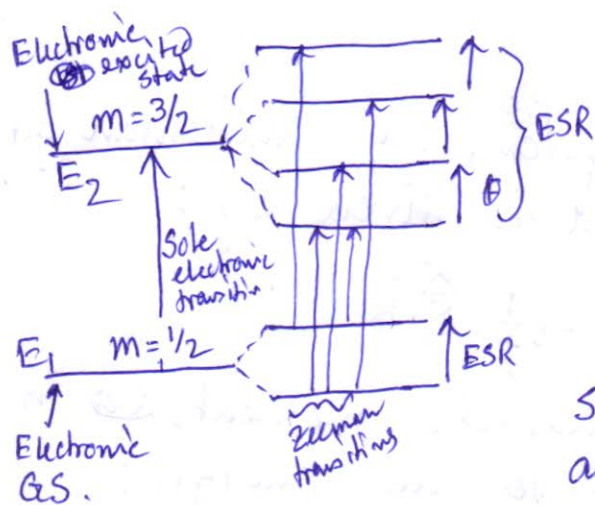 Electronic
excited
state
m = 3/2
E2
ESR
Sole
electronic
transition
E1
m = 1/2
ESR
Electronic
G.S.
Zeeman
transitions
S
a